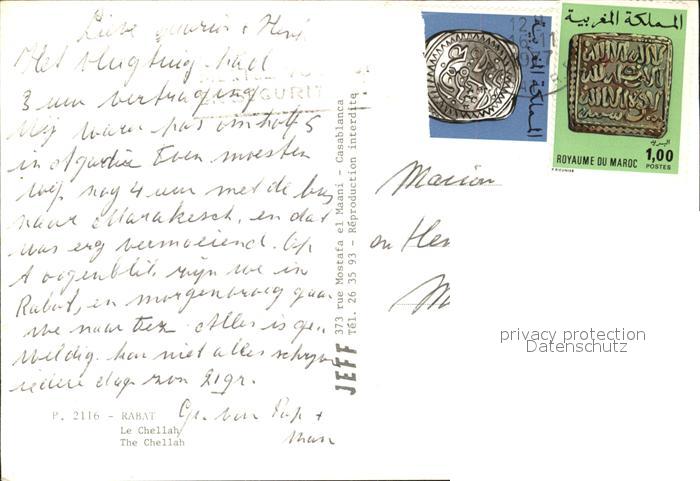 Lieve Marion + Henk
Het vliegtuig had
3 uur vertraging
Wij waren pas om half 5
in Agadir Toen moesten
wij nog 4 uur met de bus
naar Marakesch, en dat
was erg vermoeiend. Op
't oogenblik zijn we in
Rabat, en morgenvroeg gaan
we naar Fez. Alles is ge-
weldig. kan niet alles schrijven
iedere dag zon 21gr.
Gr. van Pap +
Mam
P. 2116 - RABAT
Le Chellah
The Chellah
JEFF
373 rue Mostafa el Maani - Casablanca
Tél. 26 35 93 - Réproduction interdite
المملكة المغربية
المملكة المغربية
البريد
1,00
ROYAUME DU MAROC POSTES
Marion
en Hen
privacy protection
Datenschutz